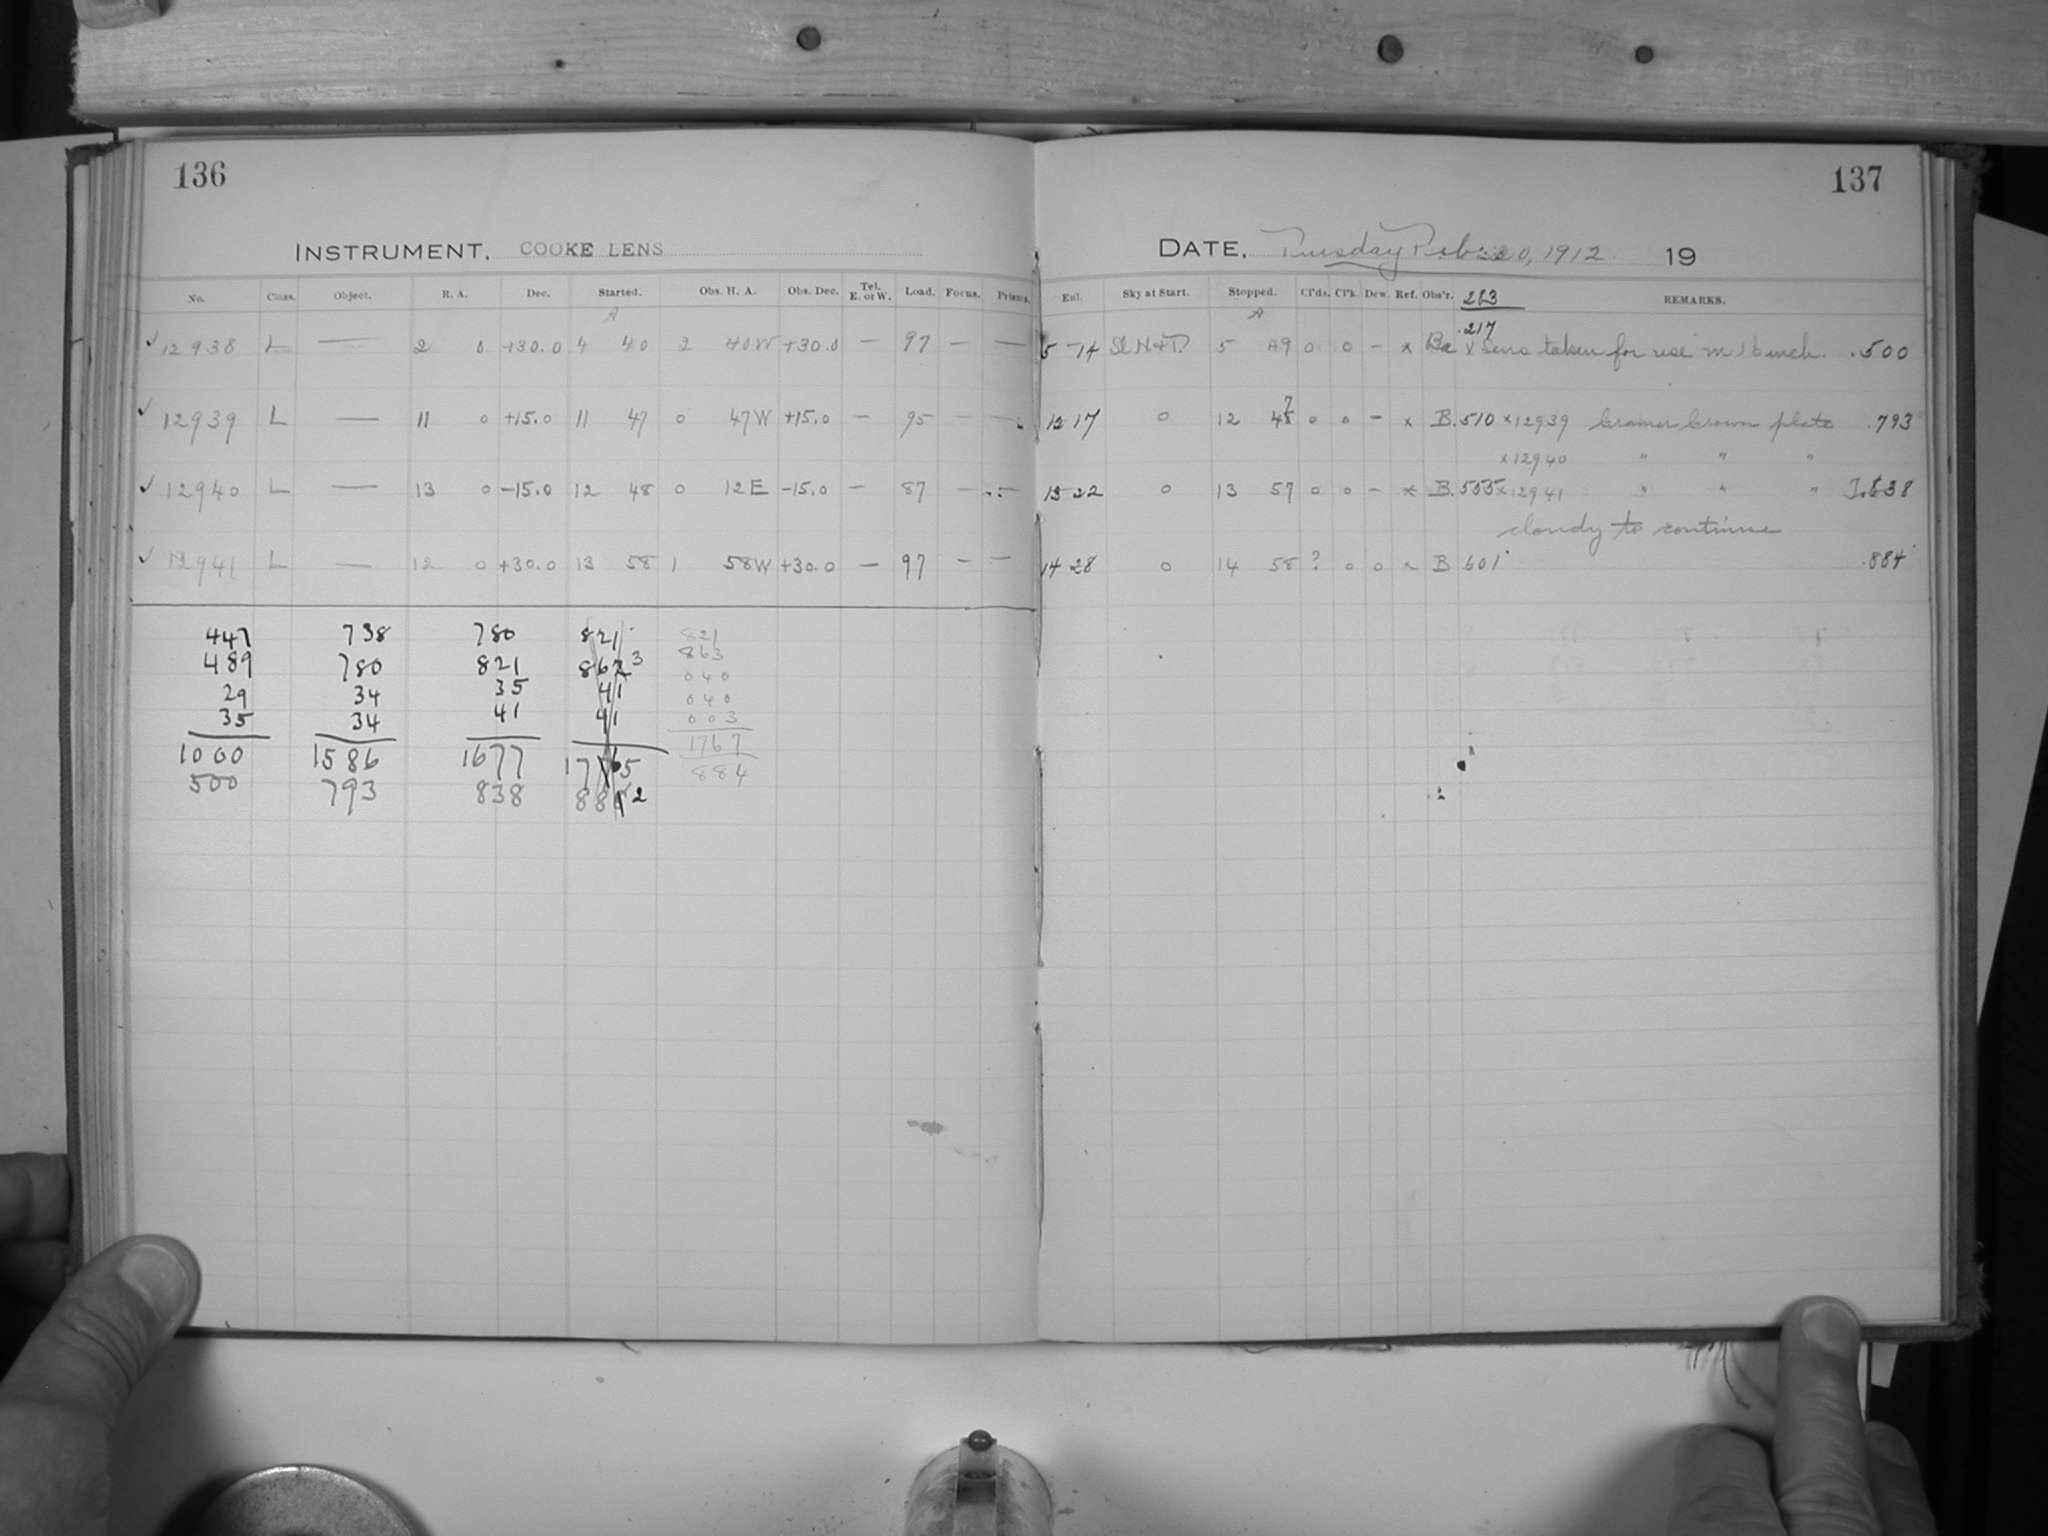 136
137
INSTRUMENT. COOKE LENS
DATE. Tuesday Feb. 20, 1912 19
No. Class. Object. R. A. Dec. Started. Obs. H. A. Obs. Dec. Tel. E. or W. Load. Focus. Prisms. Enl. Sky at Start. Stopped. Cl'ds. Cl'k. Dew. Ref. Obs'r. 283 REMARKS.
A A
.217
✓ 12938 L — 2 0 +30.0 4 40 2 40W +30.0 — 97 — — 5 14 Sl. H & T. 5 49 0 0 – x Ba x Lens taken for use in 16 inch. .500
✓ 12939 L — 11 0 +15.0 11 47 0 47W +15.0 — 95 — — 12 17 0 12 47 0 0 – x B .510 x12939 Cramer Crown plate .793
x12940 " " "
✓ 12940 L — 13 0 -15.0 12 48 0 12E -15.0 — 87 — 13 22 0 13 57 0 0 – x B .555 x12941 " " " .838
cloudy to continue
✓ 12941 L — 12 0 +30.0 13 58 1 58W +30.0 — 97 — — 14 28 0 14 58 ? 0 0 x B .601 .884
447 738 780 821 821
489 780 821 863 863
29 34 35 41 040
35 34 41 41 040
003
1000 1586 1677 1765 1767
500 793 838 882 884